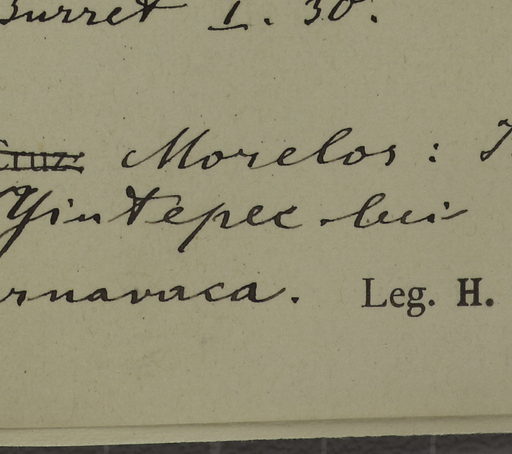 Burret I. 30.
Cruz: Morelos:
Yintepec bei
rnavaca. Leg. H.